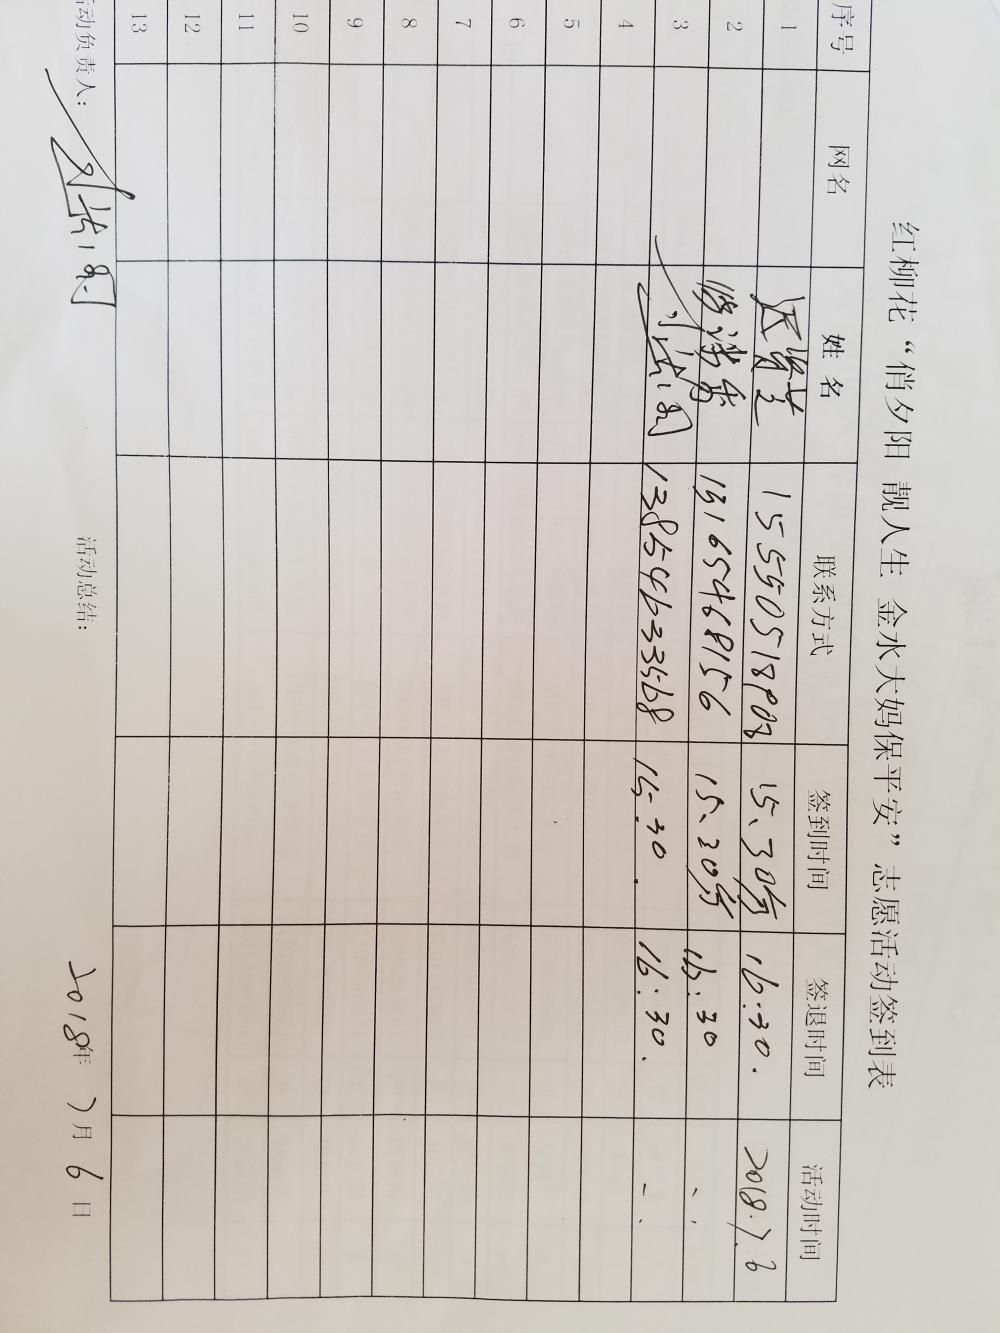 红柳花“俏夕阳 靓人生 金水大妈保平安”志愿活动签到表
序号 网名 姓名 联系方式 签到时间 签退时间 活动时间
1 15550518902 15、30分 16:30. 2018.7.6
2 13165468156 15、30分 16:30 、、
3 13854633568 15:30. 16:30. 、、
4
5
6
7
8
9
10
11
12
13
活动负责人： 活动总结： 2018年7月6日